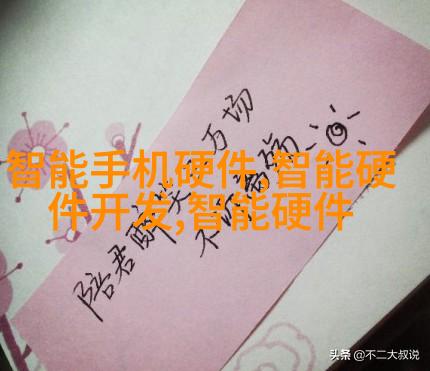 智能手机硬件,智能硬
件开发,智能硬件
陪君醉笑
万场
不
头条 @不二大叔说